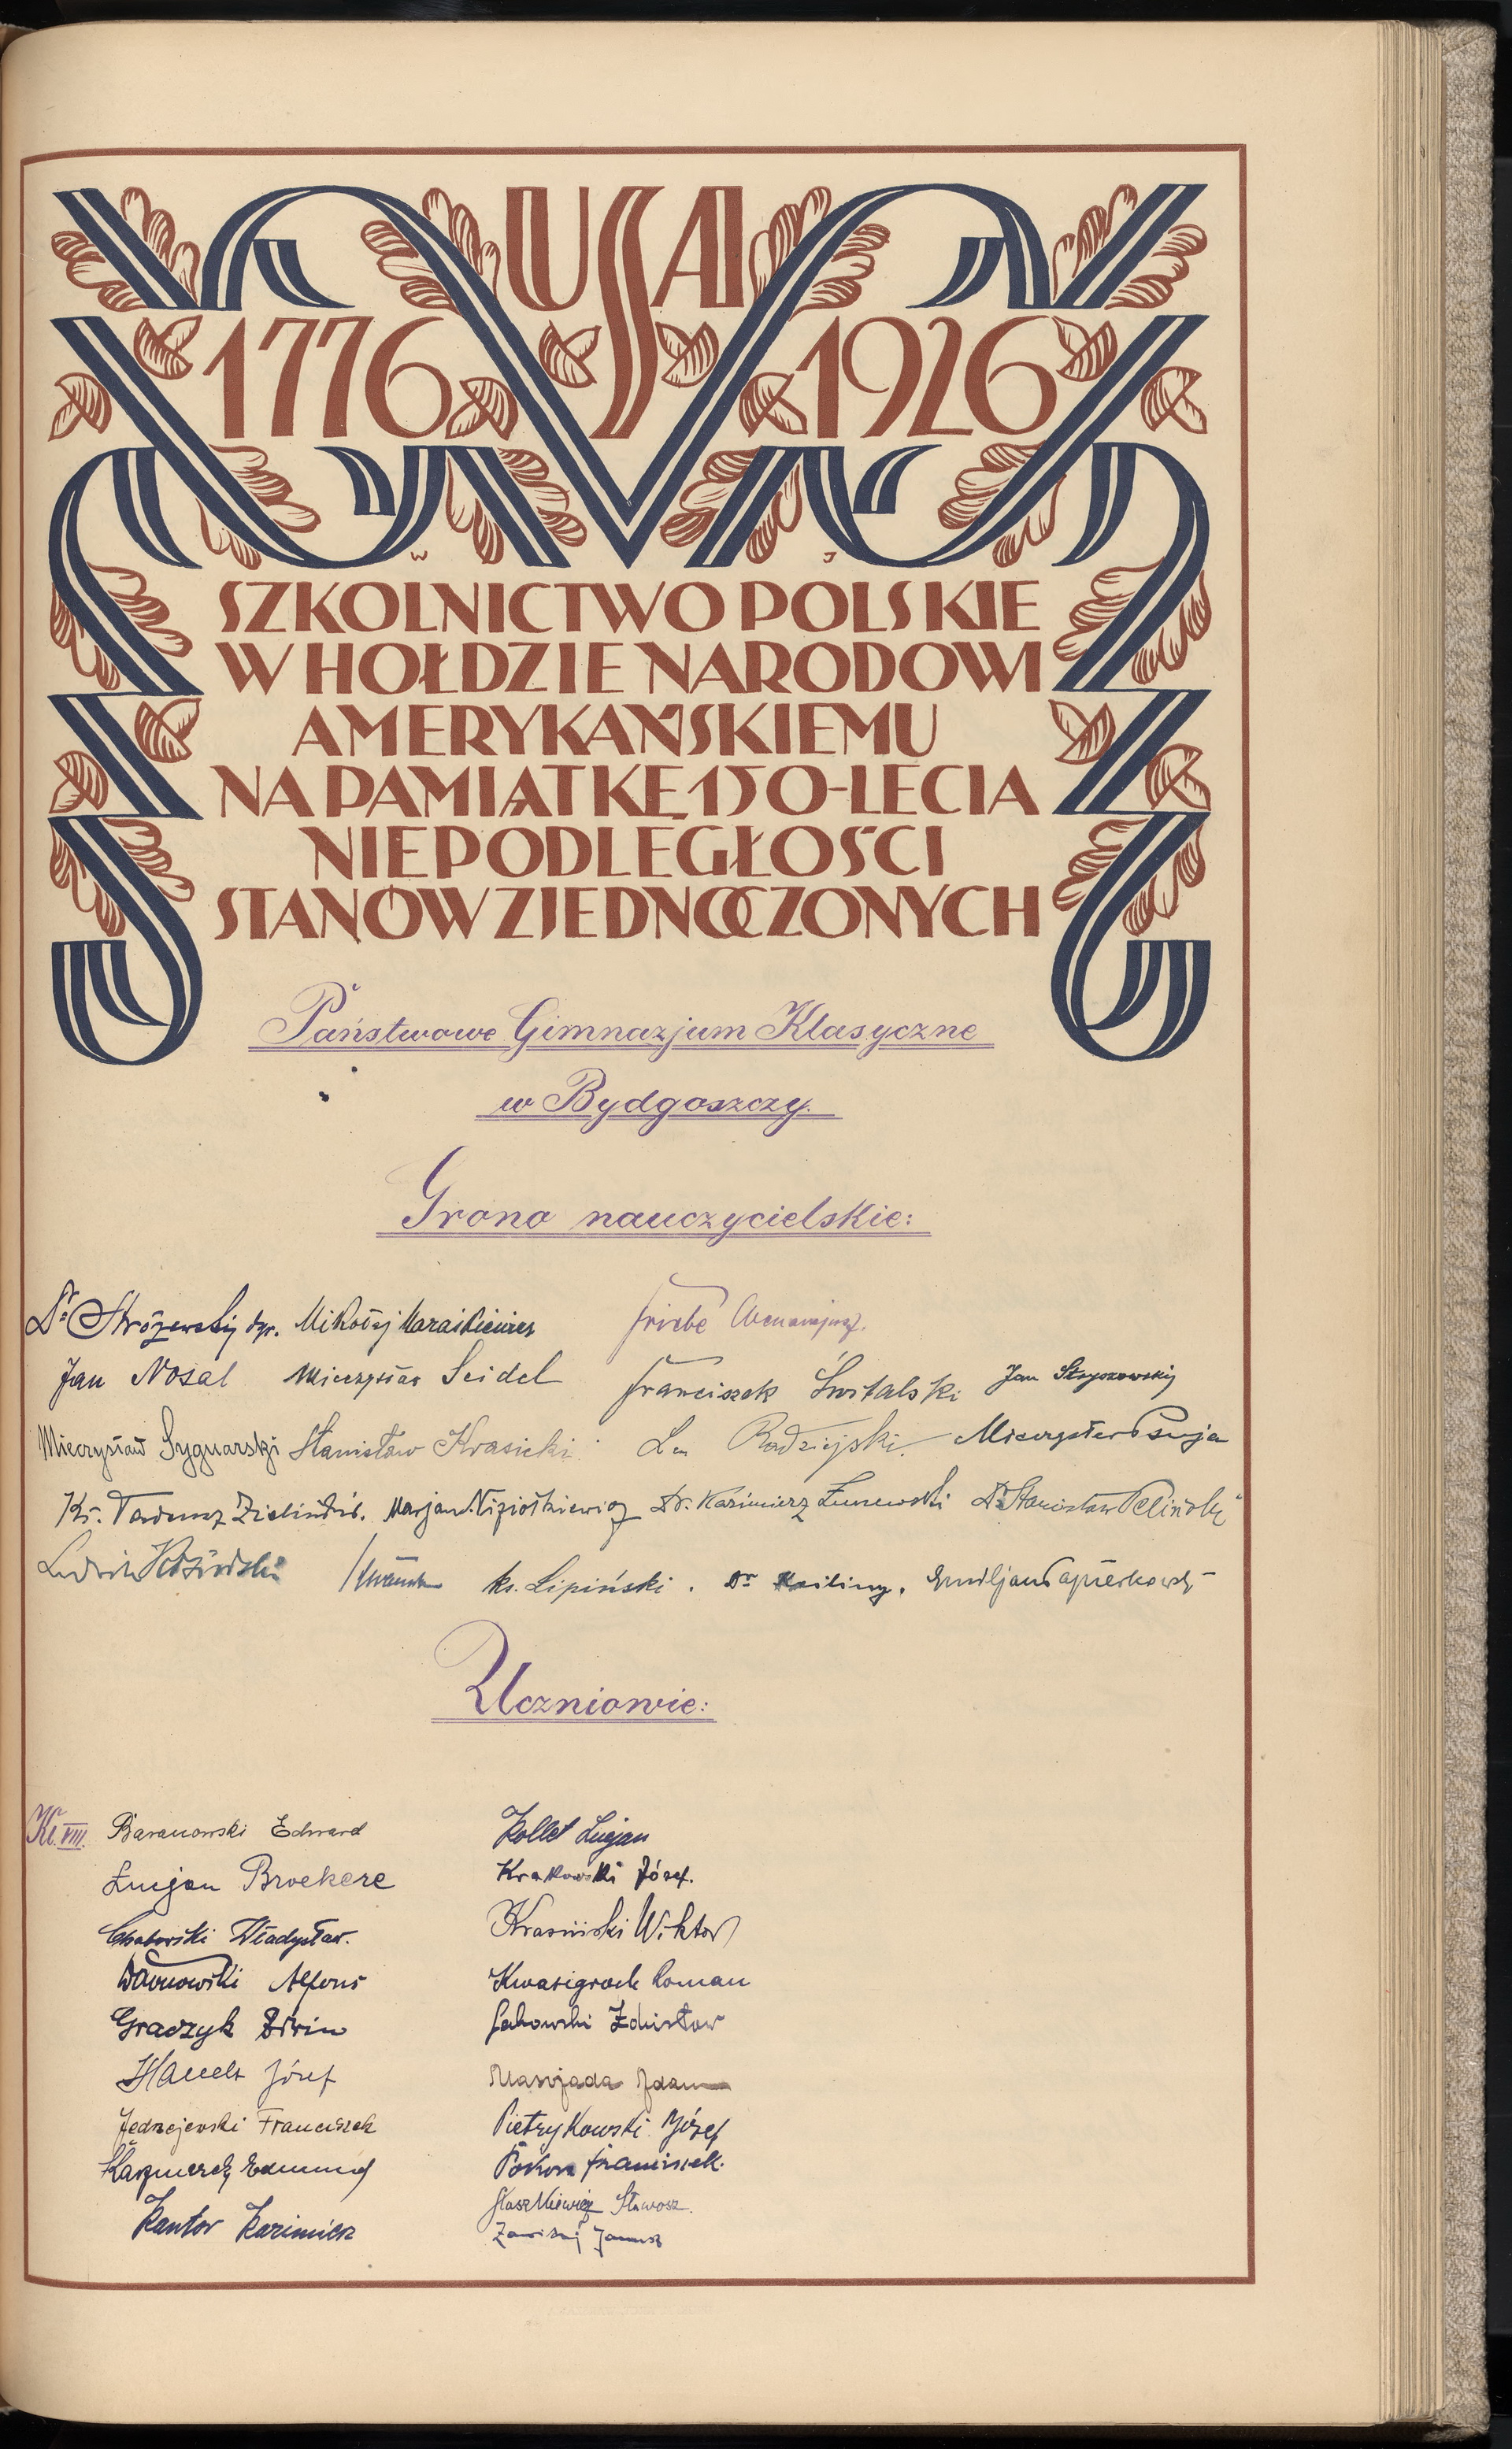 USA
1776 1926
W J
SZKOLNICTWO POLSKIE
W HOŁDZIE NARODOWI
AMERYKAŃSKIEMU
NA PAMIĄTKĘ 150-LECIA
NIEPODLEGŁOŚCI
STANÓW ZJEDNOCZONYCH
Państwowe Gimnazjum Klasyczne
w Bydgoszczy.
Grono nauczycielskie:
Dr Stróżewski dyr. Mikołaj
Jan Nosal Mieczysław Seidel Franciszek Świtalski Jan
Mieczysław Sygnarski Stanisław Krasicki Mieczysław
Ks. Tadeusz Zieliński. Marjan Niziołkiewicz Dr. Kazimierz Dr Stanisław
Ludwik ks. Lipiński. Dr Emiljan
Uczniowie:
Kl. VIII. Baranowski Edward
Lucjan Broekere
Władysław.
Alfons
Graczyk
Józef
Jedrzejewski Franciszek
Kaźmierczak Edmund
Kantor Kazimierz
Kollet Lucjan
Krakowski Józef.
Krasiński Wiktor
Kwasigroch Roman
Zdzisław
Adam
Pietrykowski Józef
Franciszek.
Staszkiewicz
Janusz